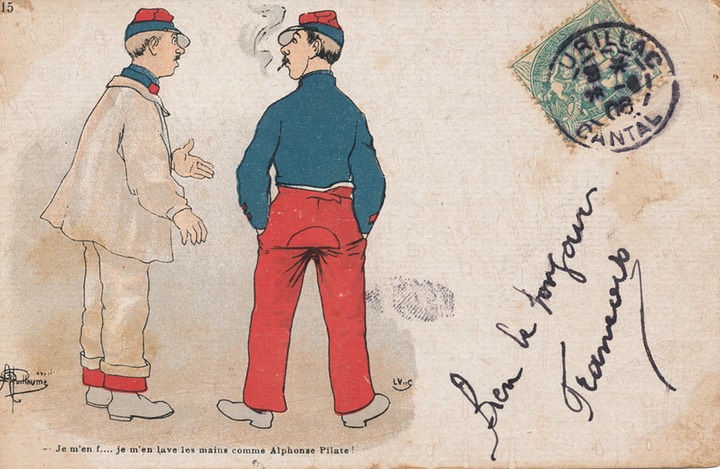 15
URILLAC
CANTAL
Bien le bonjour
Guillaume
LV & C
— Je m'en f.... je m'en lave les mains comme Alphonse Pilate !